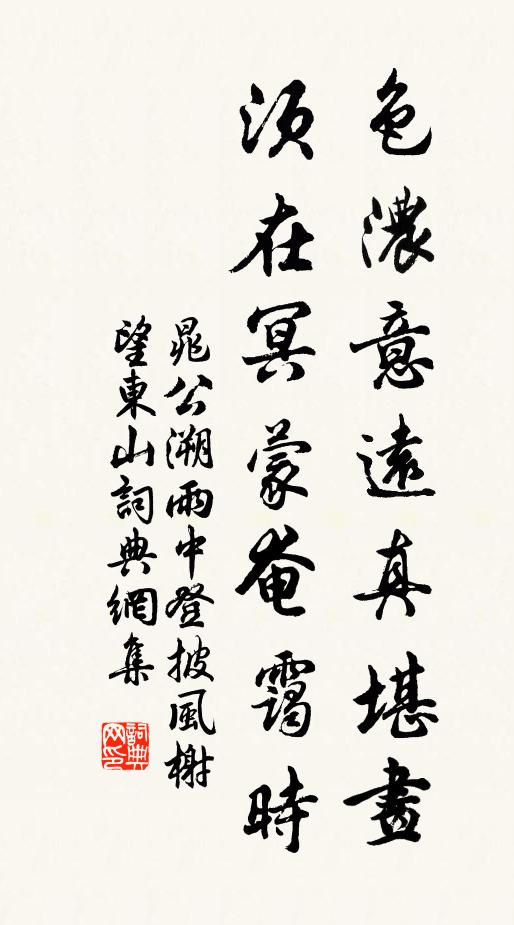 色濃意遠真堪畫
須在冥蒙奄靄時
晁公溯雨中登披風榭
望東山詞典網集
詞典
网印